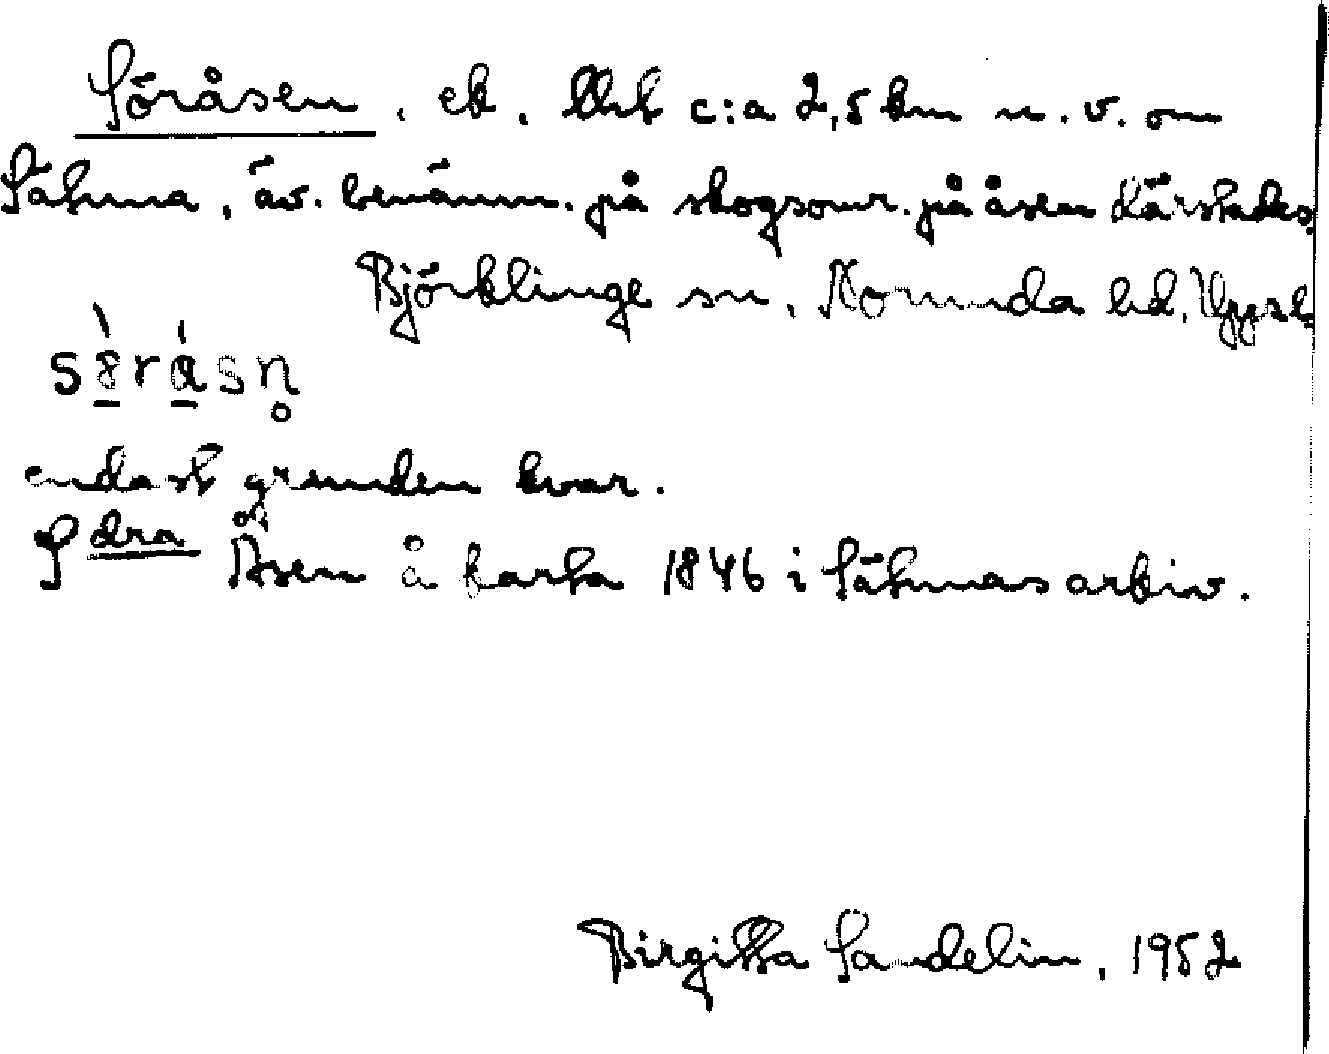 Söråsen, ek. Utk c:a 2,5 km n.v. om
Sätuna, äv. benämn. på skogsomr. på åsen Kärstads,
Björklinge sn, Norunda hd, Uppl.
sö̀rásn̥
endast grunden kvar.
S dra Åsen å karta 1846 i Sätunas arkiv.
Birgitta Sandelin, 1952